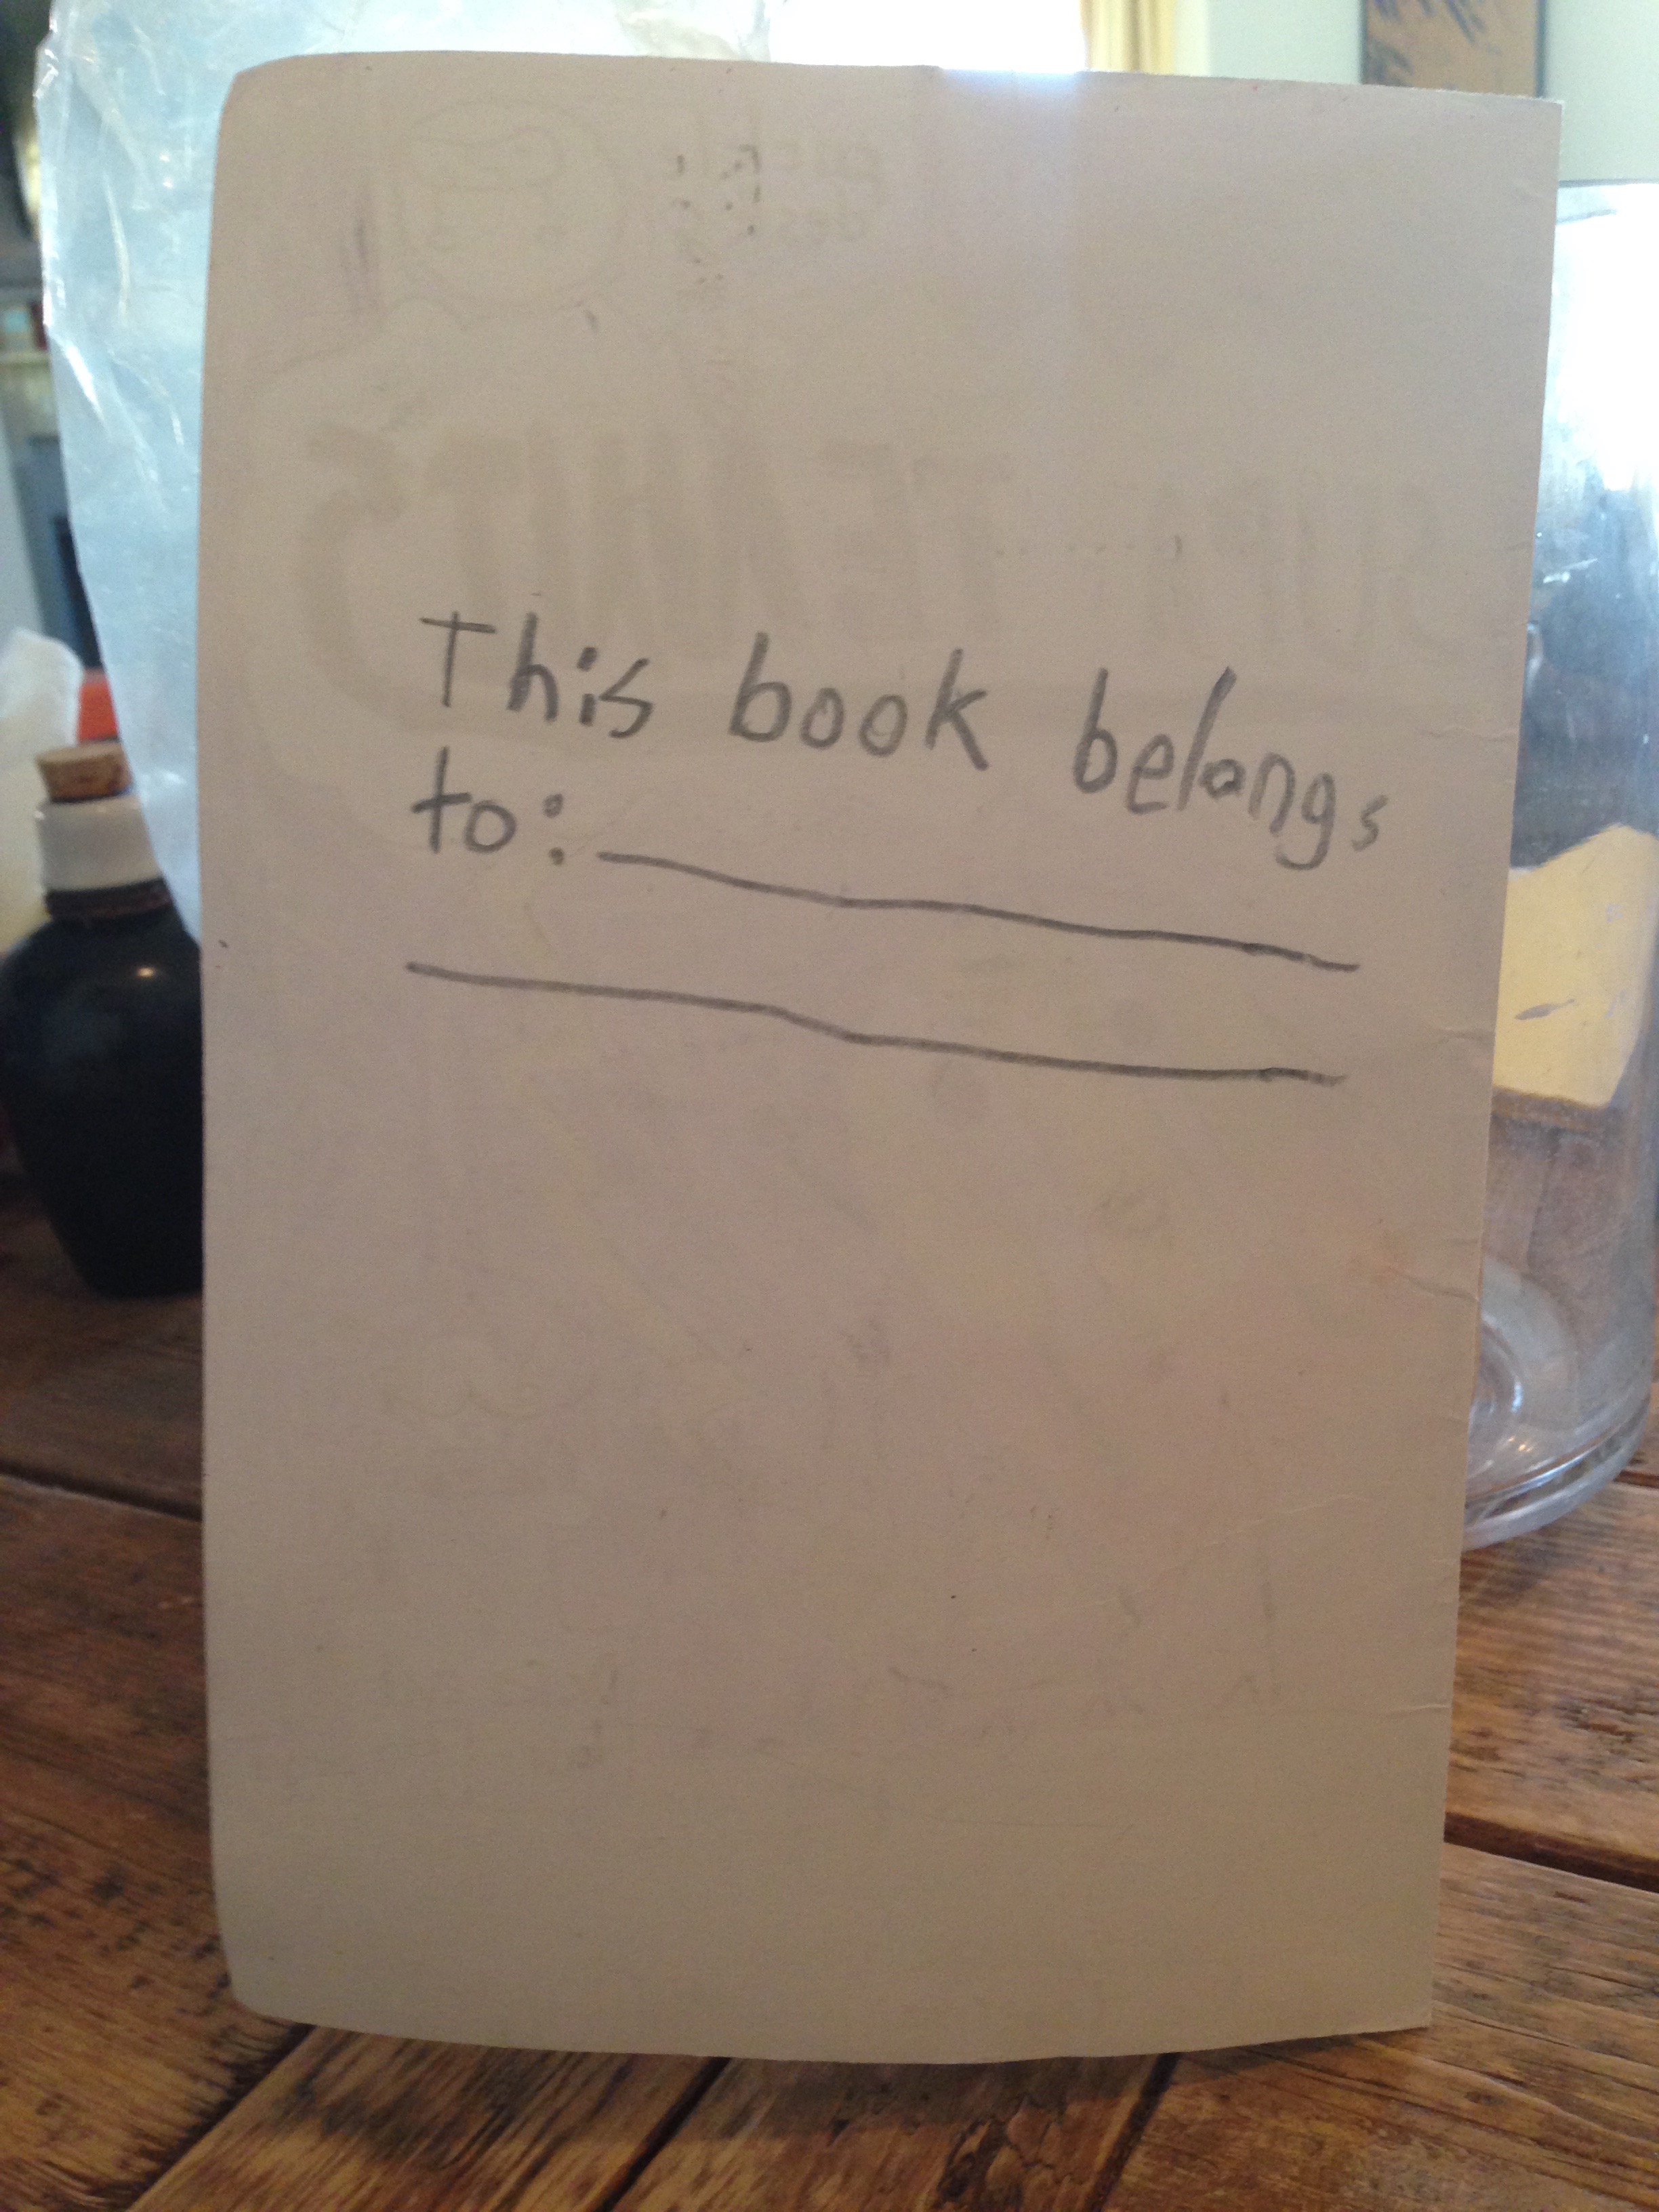 This book belongs
to: